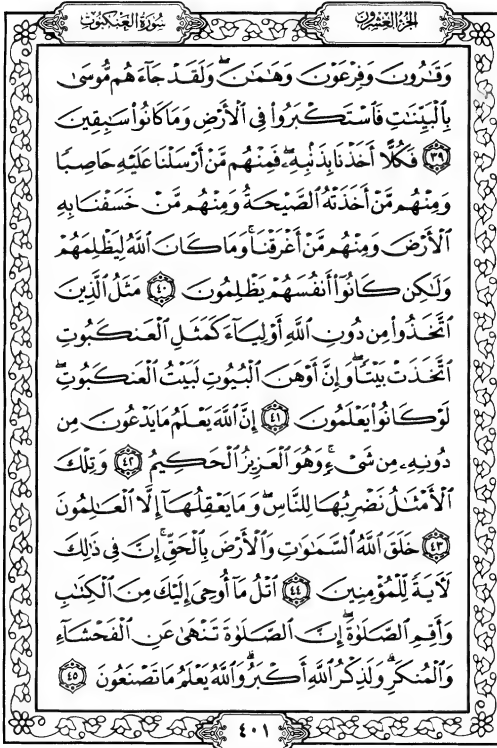 سُورَةُ العَنكَبُوتِ
الجُزْءُ العِشْرُونَ
وَقَٰرُونَ وَفِرْعَوْنَ وَهَٰمَٰنَ ۖ وَلَقَدْ جَآءَهُم مُّوسَىٰ
بِٱلْبَيِّنَٰتِ فَٱسْتَكْبَرُوا۟ فِى ٱلْأَرْضِ وَمَا كَانُوا۟ سَٰبِقِينَ
٣٩ فَكُلًّا أَخَذْنَا بِذَنۢبِهِۦ ۖ فَمِنْهُم مَّنْ أَرْسَلْنَا عَلَيْهِ حَاصِبًا
وَمِنْهُم مَّنْ أَخَذَتْهُ ٱلصَّيْحَةُ وَمِنْهُم مَّنْ خَسَفْنَا بِهِ
ٱلْأَرْضَ وَمِنْهُم مَّنْ أَغْرَقْنَا ۚ وَمَا كَانَ ٱللَّهُ لِيَظْلِمَهُمْ
وَلَٰكِن كَانُوٓا۟ أَنفُسَهُمْ يَظْلِمُونَ ٤٠ مَثَلُ ٱلَّذِينَ
ٱتَّخَذُوا۟ مِن دُونِ ٱللَّهِ أَوْلِيَآءَ كَمَثَلِ ٱلْعَنكَبُوتِ
ٱتَّخَذَتْ بَيْتًا ۖ وَإِنَّ أَوْهَنَ ٱلْبُيُوتِ لَبَيْتُ ٱلْعَنكَبُوتِ ۖ
لَوْ كَانُوا۟ يَعْلَمُونَ ٤١ إِنَّ ٱللَّهَ يَعْلَمُ مَا يَدْعُونَ مِن
دُونِهِۦ مِن شَىْءٍ ۚ وَهُوَ ٱلْعَزِيزُ ٱلْحَكِيمُ ٤٢ وَتِلْكَ
ٱلْأَمْثَٰلُ نَضْرِبُهَا لِلنَّاسِ ۖ وَمَا يَعْقِلُهَآ إِلَّا ٱلْعَٰلِمُونَ
٤٣ خَلَقَ ٱللَّهُ ٱلسَّمَٰوَٰتِ وَٱلْأَرْضَ بِٱلْحَقِّ ۚ إِنَّ فِى ذَٰلِكَ
لَءَايَةً لِّلْمُؤْمِنِينَ ٤٤ ٱتْلُ مَآ أُوحِىَ إِلَيْكَ مِنَ ٱلْكِتَٰبِ
وَأَقِمِ ٱلصَّلَوٰةَ ۖ إِنَّ ٱلصَّلَوٰةَ تَنْهَىٰ عَنِ ٱلْفَحْشَآءِ
وَٱلْمُنكَرِ ۗ وَلَذِكْرُ ٱللَّهِ أَكْبَرُ ۗ وَٱللَّهُ يَعْلَمُ مَا تَصْنَعُونَ ٤٥
٤٠١